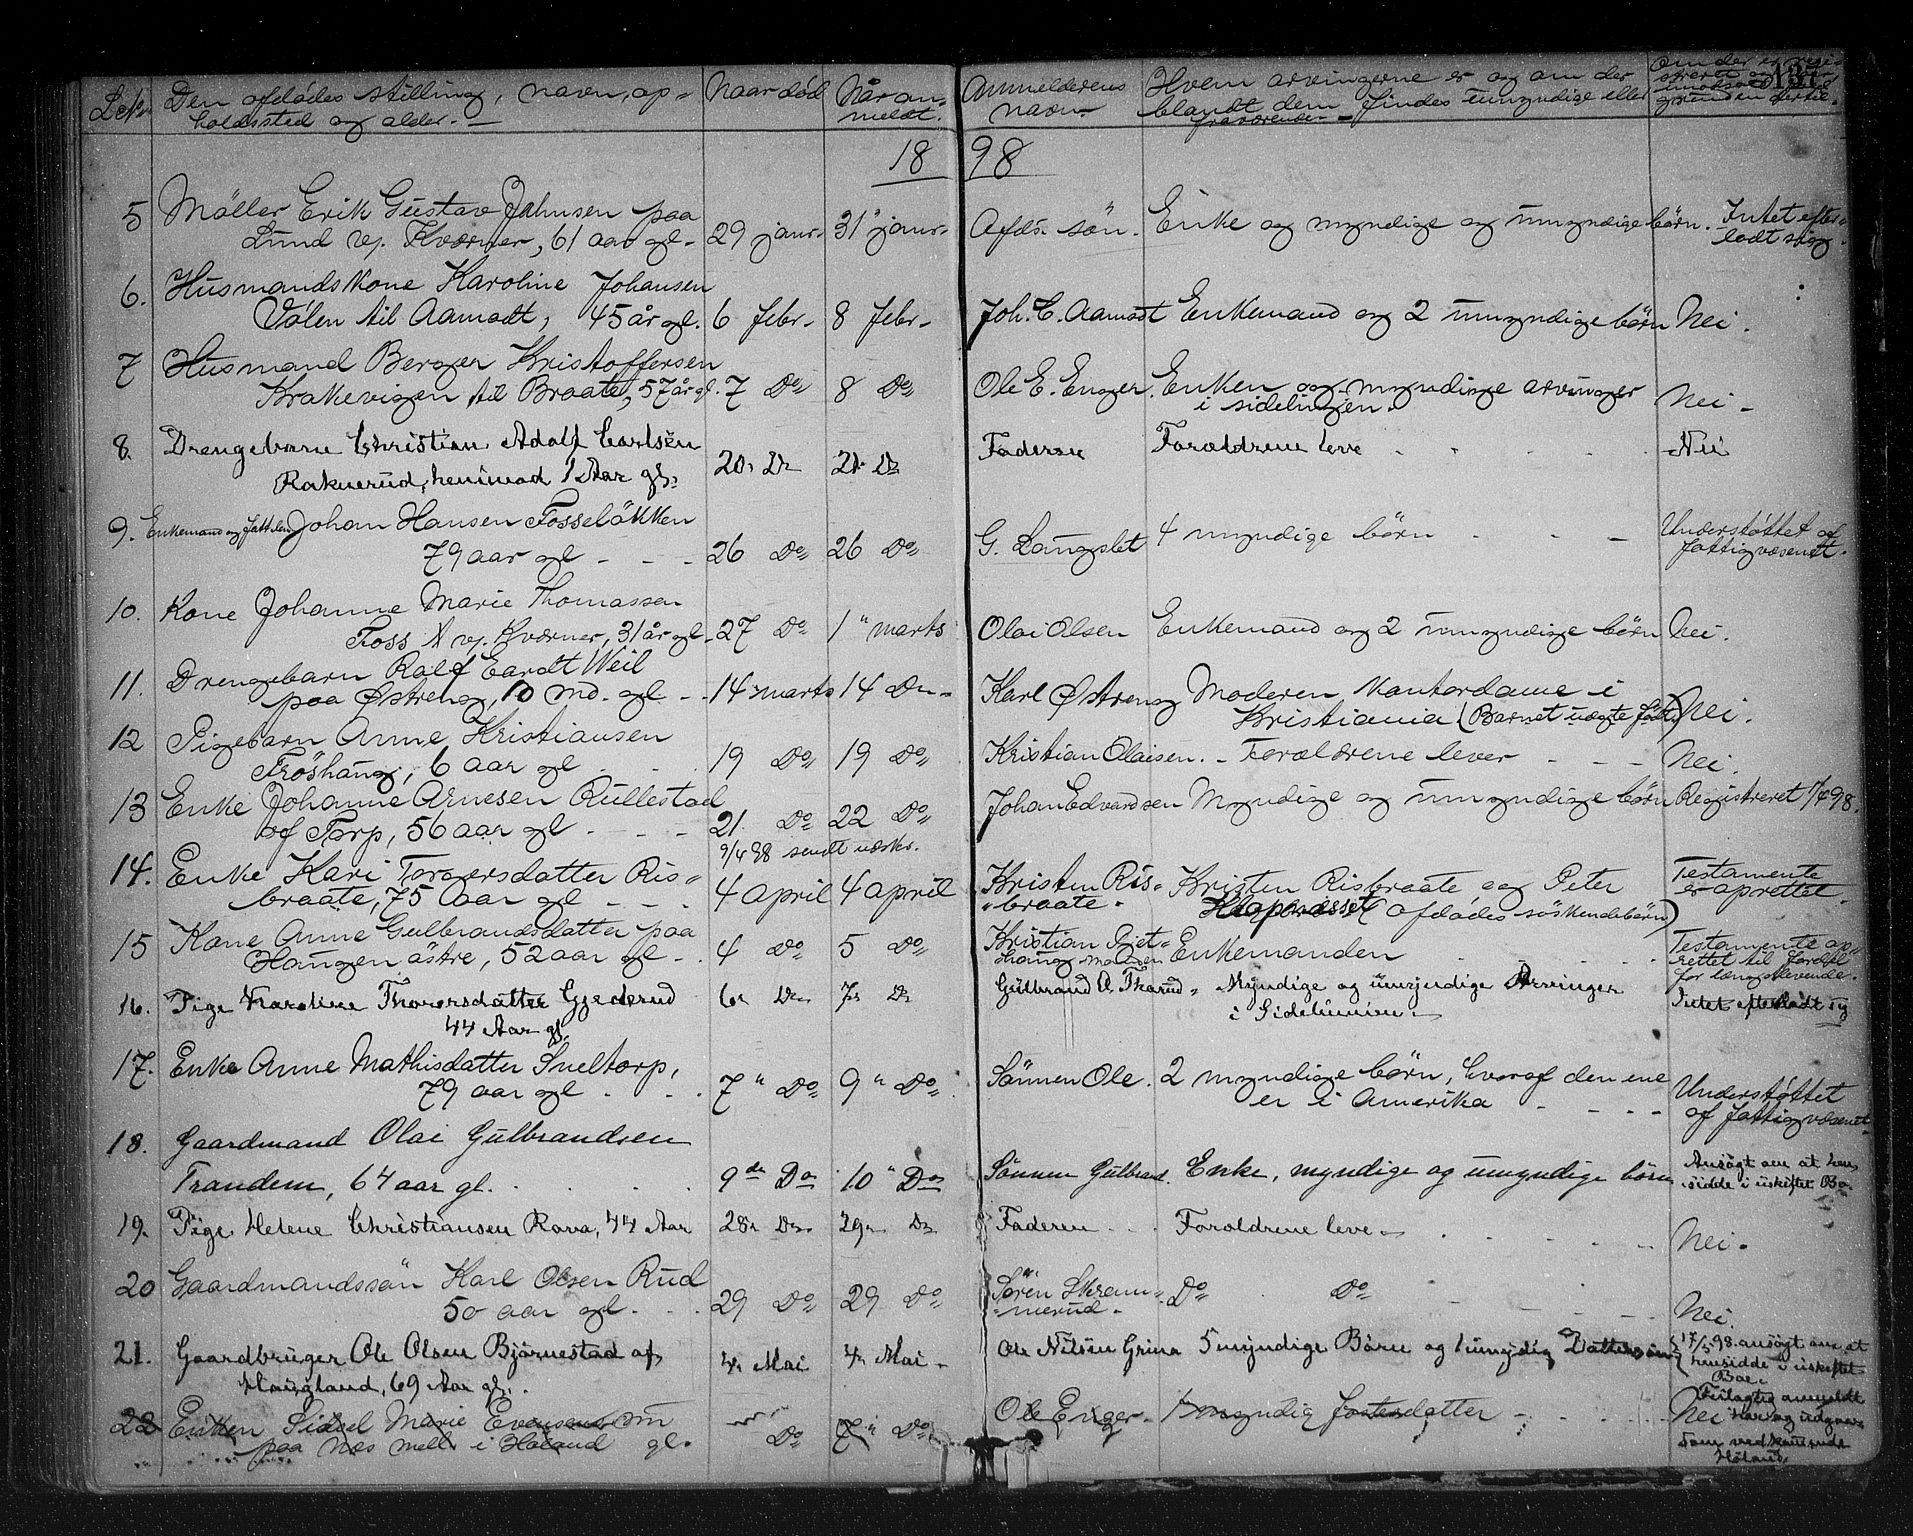 Den afdødes stilling, navn, op=
holdssted og alder. —
Naar død
Når an-
meldt.
Anmelderens
navn —
Hvem arvingerne er og om der
blandt dem findes umyndige eller
fraværende —
137
18 98
5 Møller Erik Gustav Jahnsen paa
Lund v. Kværner, 61 aar gl. 29 janr. 31" janr. Afds. søn. Enke og myndige og umyndige børn. Intet efter=
ladt sig.
6. Husmandskone Karoline Johansen
Vålen til Aamodt, 45 år gl. 6 febr. 8 febr. Joh. E. Aamodt Enkemand og 2 umyndige børn Nei.
7 Husmand Berger Kristoffersen
Krakevigen til Braate, 57 år gl. 7 Do 8 Do Ole E. Enger. Enken og myndige arvinger
i sidelinjen. Nei -
8. Drengebarn Christian Adolf Carlsen
Raknerud, henimod 1 Aar gl. 20 Do 21 Do Faderen Forældrene leve Nei
9. Enkemand og fattiglem Johan Hansen Fosseløkken
79 aar gl 26 Do 26 Do G. Langslet 4 myndige børn Understøttet af
fattigvæsenet.
10. Kone Johanne Marie Thomassen
Foss v. Kværner, 31 år gl. 27 Do 1" marts Olai Olsen Enkemand og 2 umyndige børn Nei.
11. Drengebarn Ralf Weil
paa Østreng, 10 md. gl 14 marts 14 Do Karl Østreng Moderen Kontordame i
Kristiania (Barnet uægte født) Nei.
12 Pigebarn Anne Kristiansen
Frøshaug, 6 aar gl 19 Do 19 Do Kristian Olaisen. Forældrene lever Nei.
13 Enke Johanne Arnesen Rullestad
af Torp, 56 aar gl 21. Do 22 Do Johan Edvardsen Myndige og umyndige børn Registreret 1/4 98.
9/4 98 sendt
14. Enke Kari Torgersdatter Ris=
braate, 75 aar gl 4 April 4 april Kristen Ris=
braate. Kristen Risbraate og Peter
(afdødes søskendebørn) Testamente
er oprettet.
15 Kone Anne Gulbrandsdatter paa
Haugen østre, 52 aar gl 4 Do 5 Do Kristian
Enkemanden Testamente op=
rettet til fordel
for længstlevende.
16. Pige Karoline Thorersdatter Gjederud
44 Aar gl. 6 Do 7 Do Gulbrand A. Tkarud Myndige og umyndige Arvinger
i Sidelinien Intet efterladt sig
17. Enke Anne Mathisdatter Sneltorp,
79 aar gl 7" Do 9" Do Sønnen Ole. 2 myndige børn, hvoraf den ene
er i Amerika Understøttet
af fattigvæsenet.
18. Gaardmand Olai Gulbrandsen
Trandem, 64 aar gl. 9de Do 10" Do Sønnen Gulbrand. Enke, myndige og umyndige børn Ansøgt om at hen
sidde i uskiftet Bo.
19. Pige Helene Christiansen Rava, 44 Aar 28 Do 29 Do Faderen Forældrene leve Nei.
20 Gaardmandssøn Karl Olsen Rud
50 aar gl. 29 Do 29 Do Søren Skram=
merud. Do Do Nei.
21. Gaardbruger Ole Olsen Bjørnestad af
Haugland, 69 Aar gl. 4 Mai 4 Mai Ole Nilsen Grina 5 myndige Børn og 1 umyndig Dattersøn 17/5 98. ansøgt om at
hensidde i uskiftet
Boe.
22 Enken Sidsel Marie Evensens
paa Næs Mell. i Høland gl. Do 7" Do Ole Enger 1 myndig fosterdatter Nei
Feilagtig anmeldt
som vedkommende
Høland